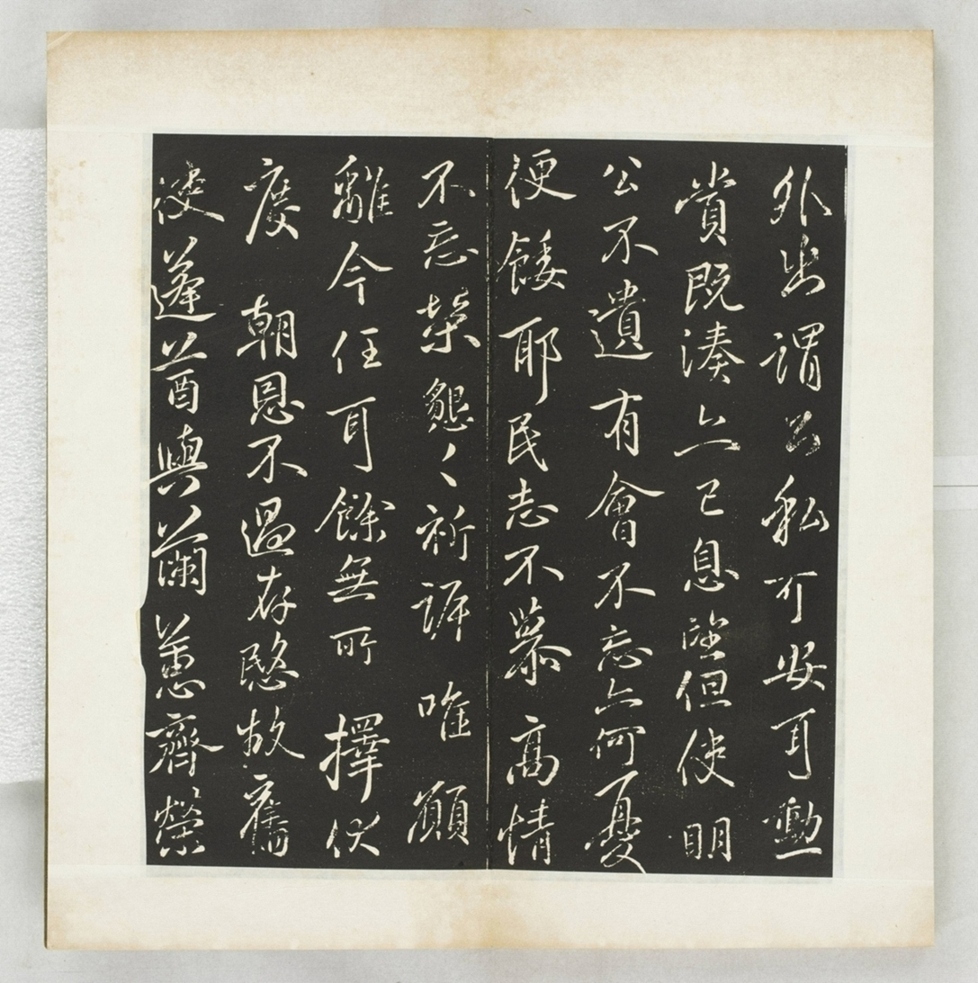 外出謂公私可安耳勳
賞既湊亦已息望但使明
公不遺有會不忘亦何憂
便餧耶民志不慕高情
不忘榮懇〻祈訴唯願
離今任耳餘無所擇伏
度朝恩不過存愍故舊
使蓬首與蘭蕙齊榮